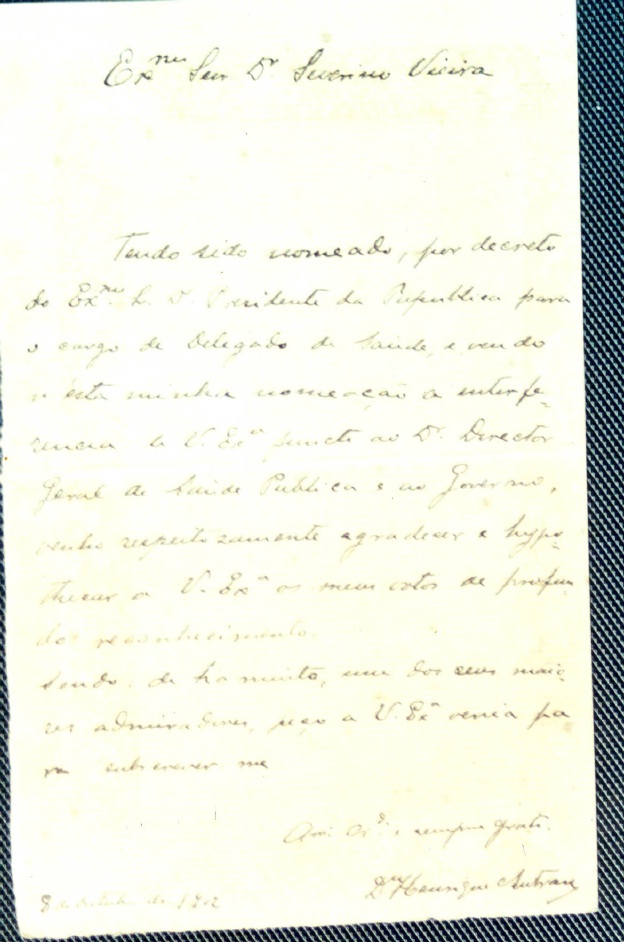 Exmo Snr Dr Severino Vieira
Tendo sido nomeado, por decreto
do Exmo Sr. Dr. Presidente da Republica para
o cargo de Delegado de Saúde, e vendo
n'esta minha nomeação a interfe-
rencia de V. Exa juncto ao Dr. Director
Geral de Saúde Publica e ao Governo,
venho respeitosamente agradecer e hypo-
thecar a V. Exa os meus votos de profun
do reconhecimento.
Sendo, de ha muito, um dos seus maio-
res admiradores, peço a V. Exa venia pa
ra subscrever me
Amo Cro e sempre grato.
Dr Henrique Autran
8 de 1902